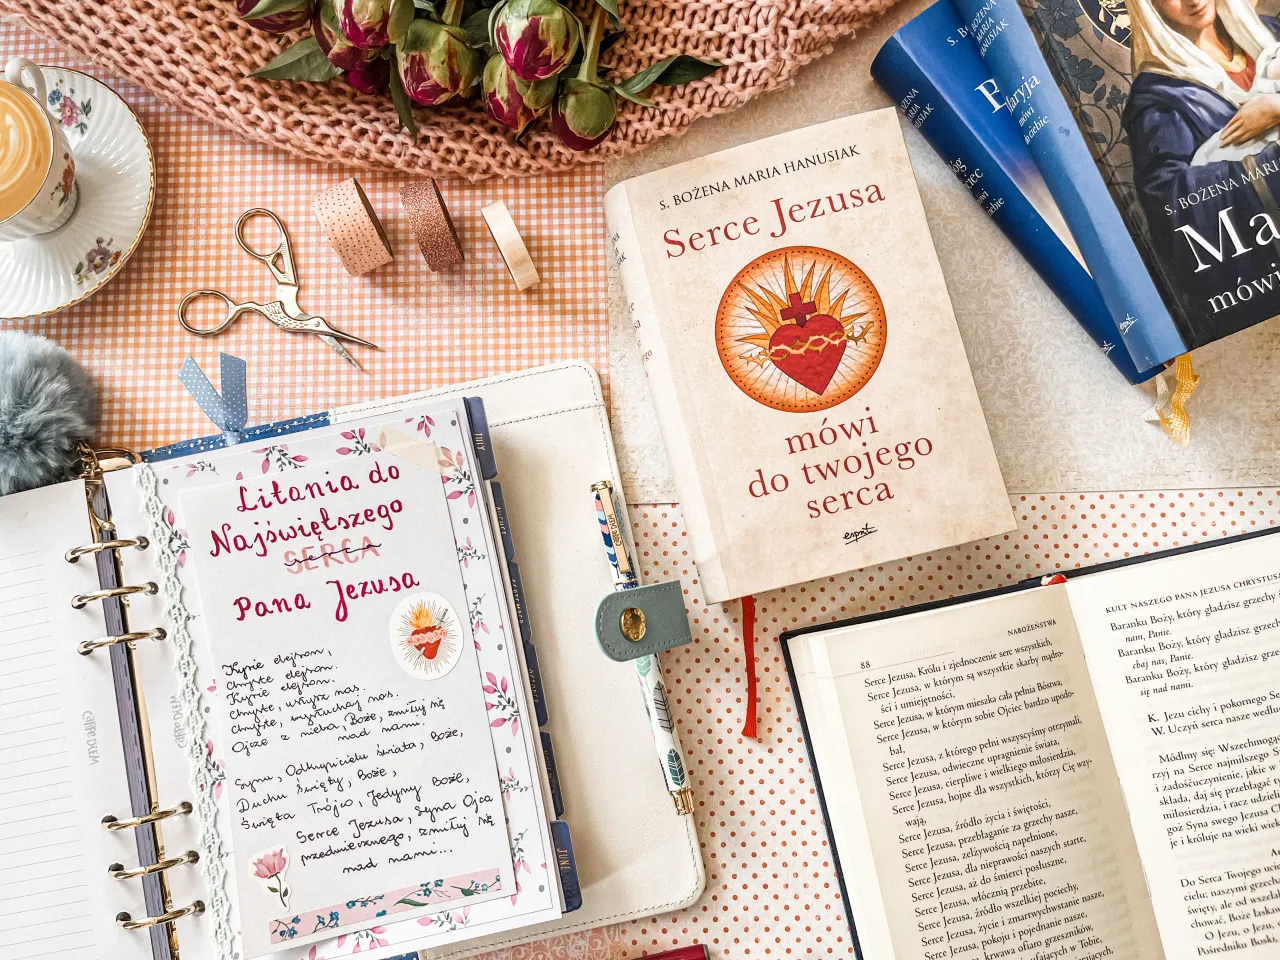 S. BOŻENA MARIA HANUSIAK
Serce Jezusa
mówi
do twojego
serca
esprit
S. BOŻENA
MARIA
HANUSIAK
Maryja
mówi
do ciebie
esprit
S. BOŻENA MARIA
Ma
mówi
Litania do
Najświętszego
SERCA
serca
Pana Jezusa
Kyrie elejson,
Chryste elejson.
Kyrie elejson.
Chryste, usłysz nas.
Chryste, wysłuchaj nas.
Ojcze z nieba, Boże, zmiłuj się
nad nami!
Synu, Odkupicielu świata, Boże,
Duchu Święty, Boże,
Święta Trójco, Jedyny Boże,
Serce Jezusa, Syna Ojca
przedwiecznego, zmiłuj się
nad nami...
JULY
AUGUST
JUNE
CARPE DIEM
NABOŻEŃSTWA
88
Serce Jezusa, Królu i zjednoczenie serc wszystkich,
Serce Jezusa, w którym są wszystkie skarby mądro-
ści i umiejętności,
Serce Jezusa, w którym mieszka cała pełnia Bóstwa,
Serce Jezusa, w którym sobie Ojciec bardzo upodo-
bał,
Serce Jezusa, z którego pełni wszyscyśmy otrzymali,
Serce Jezusa, odwieczne upragnienie świata,
Serce Jezusa, cierpliwe i wielkiego miłosierdzia,
Serce Jezusa, hojne dla wszystkich, którzy Cię wzy-
wają,
Serce Jezusa, źródło życia i świętości,
Serce Jezusa, przebłaganie za grzechy nasze,
Serce Jezusa, zelżywością napełnione,
Serce Jezusa, dla nieprawości naszych starte,
Serce Jezusa, aż do śmierci posłuszne,
Serce Jezusa, włócznią przebite,
Serce Jezusa, źródło wszelkiej pociechy,
Serce Jezusa, życie i zmartwychwstanie nasze,
Serce Jezusa, pokoju i pojednanie nasze,
Serce Jezusa, krwawa ofiaro grzeszników,
KULT NASZEGO PANA JEZUSA CHRYSTUSA
Baranku Boży, który gładzisz grzechy
nam, Panie.
Baranku Boży, który gładzisz grzech
chaj nas, Panie.
Baranku Boży, który gładzisz grze
się nad nami.
K. Jezu cichy i pokornego Se
W. Uczyń serca nasze wedłu
Módlmy się: Wszechmogąc
rzyj na Serce najmilszego S
i zadośćuczynienie, jakie w
składa, daj się przebłagać
miłosierdzia, i racz udzieli
goż Syna swego Jezusa C
je i króluje na wieki wiek
Do Serca Twojego uc
cielu; naszymi grzech
święty, ale od wszela
chować, Boże łaska
O Jezu, o Jezu,
Pośredniku Boski,